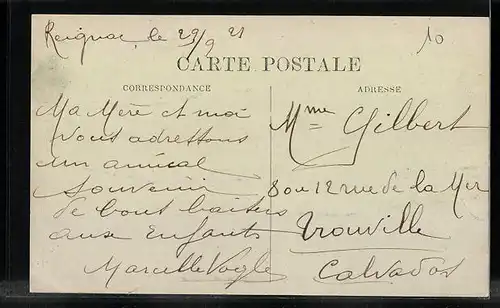 Reignac, le 29/9 21
10
CARTE POSTALE
CORRESPONDANCE
ADRESSE
Ma Mère et moi
vous adressons
un amical
souvenir
de bons baisers
aux Enfants
Marcelle Vogle
Mme Gilbert
8 ou 12 rue de la Mer
Trouville
Calvados